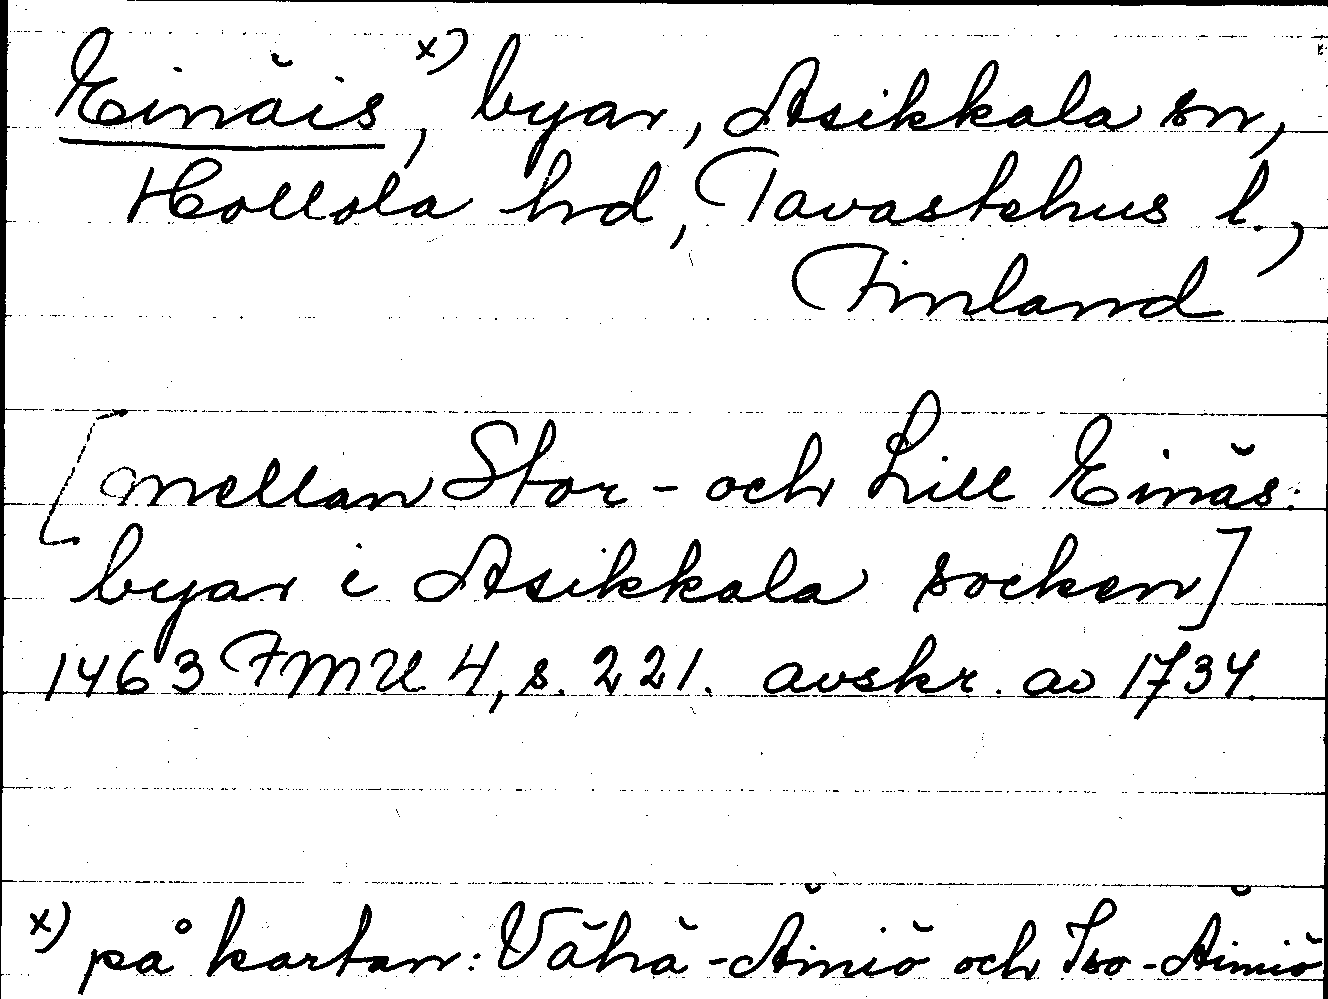 Einäis, x) byar, Asikkala sn,
Hollola hd, Tavastehus l.,
Finland
[mellan Stor- och Lill Einäs:
byar i Asikkala socken]
1463 FMU 4, s. 221. avskr. av 1734.
x) på kartan: Vähä-Äiniö och Iso-Äiniö